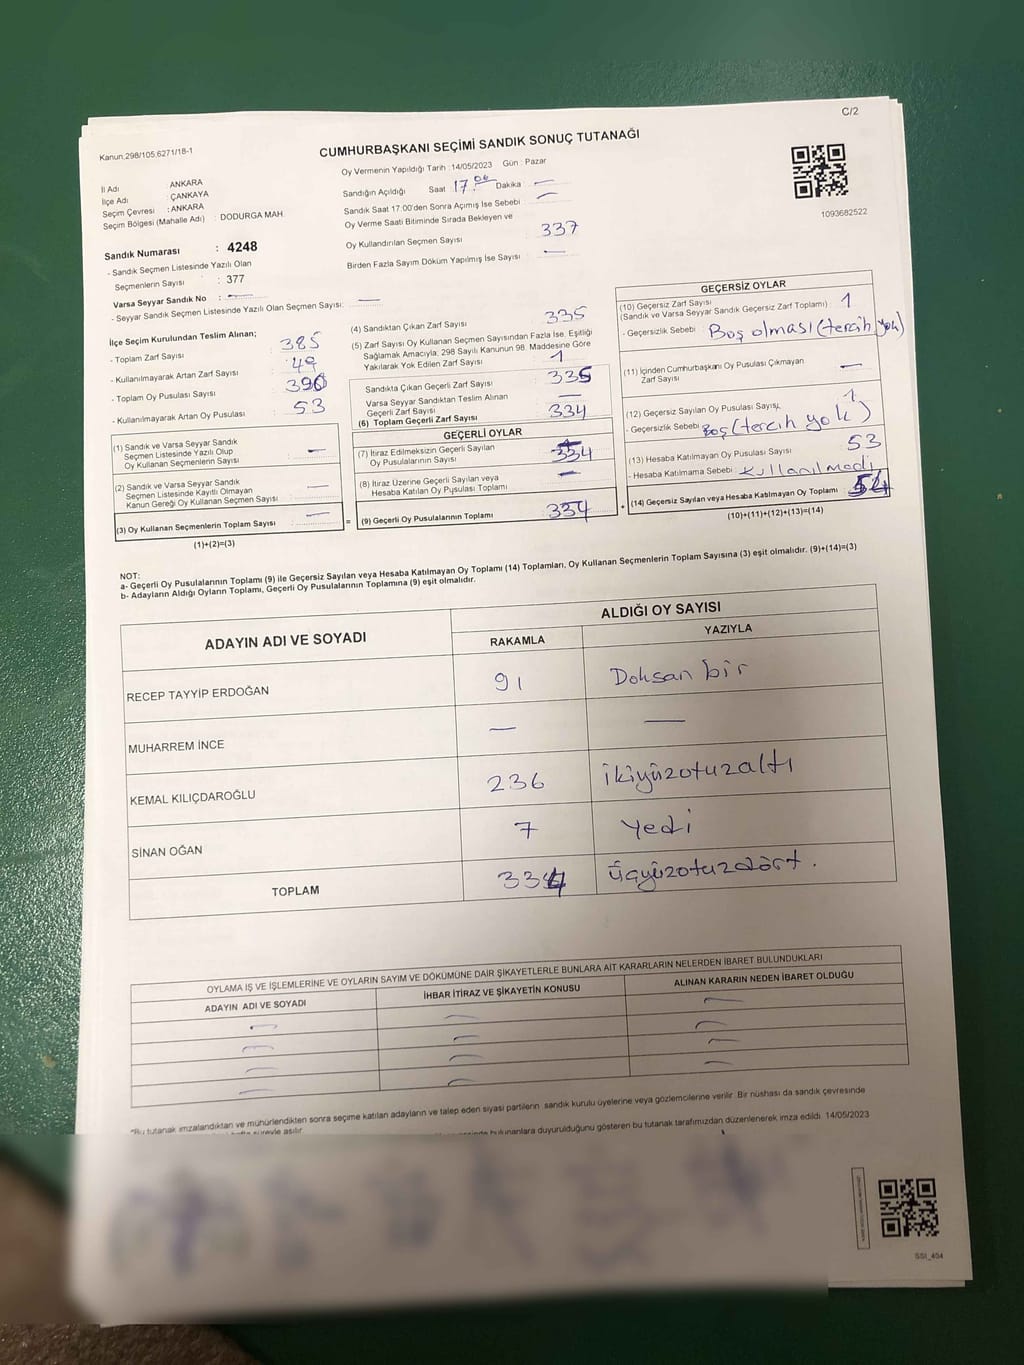 C/2
Kanun.298/105.6271/18-1
CUMHURBAŞKANI SEÇİMİ SANDIK SONUÇ TUTANAĞI
İl Adı : ANKARA
İlçe Adı : ÇANKAYA
Seçim Çevresi : ANKARA
Seçim Bölgesi (Mahalle Adı) : DODURGA MAH.
Oy Vermenin Yapıldığı Tarih : 14/05/2023 Gün : Pazar
Sandığın Açıldığı Saat 17:06 Dakika —
Sandık Saat 17:00'den Sonra Açımış İse Sebebi —
Oy Verme Saati Bitiminde Sırada Bekleyen ve
Oy Kullandırılan Seçmen Sayısı 337
Birden Fazla Sayım Döküm Yapılmış İse Sayısı : —
1093682522
Sandık Numarası : 4248
- Sandık Seçmen Listesinde Yazılı Olan
Seçmenlerin Sayısı : 377
Varsa Seyyar Sandık No : —
- Seyyar Sandık Seçmen Listesinde Yazılı Olan Seçmen Sayısı: —
İlçe Seçim Kurulundan Teslim Alınan;
- Toplam Zarf Sayısı : 385
- Kullanılmayarak Artan Zarf Sayısı : 49
- Toplam Oy Pusulası Sayısı : 390
- Kullanılmayarak Artan Oy Pusulası : 53
(1) Sandık ve Varsa Seyyar Sandık
Seçmen Listesinde Yazılı Olup
Oy Kullanan Seçmenlerin Sayısı —
(2) Sandık ve Varsa Seyyar Sandık
Seçmen Listesinde Kayıtlı Olmayan
Kanun Gereği Oy Kullanan Seçmen Sayısı —
(3) Oy Kullanan Seçmenlerin Toplam Sayısı —
(1)+(2)=(3)
=
(4) Sandıktan Çıkan Zarf Sayısı 335
(5) Zarf Sayısı Oy Kullanan Seçmen Sayısından Fazla İse, Eşitliği
Sağlamak Amacıyla, 298 Sayılı Kanunun 98. Maddesine Göre
Yakılarak Yok Edilen Zarf Sayısı 1
Sandıkta Çıkan Geçerli Zarf Sayısı : 335
Varsa Seyyar Sandıktan Teslim Alınan
Geçerli Zarf Sayısı —
(6) Toplam Geçerli Zarf Sayısı 334
GEÇERLİ OYLAR
(7) İtiraz Edilmeksizin Geçerli Sayılan
Oy Pusulalarının Sayısı 334
(8) İtiraz Üzerine Geçerli Sayılan veya
Hesaba Katılan Oy Pusulası Toplamı —
(9) Geçerli Oy Pusulalarının Toplamı 334
+
GEÇERSİZ OYLAR
(10) Geçersiz Zarf Sayısı
(Sandık ve Varsa Seyyar Sandık Geçersiz Zarf Toplamı) 1
- Geçersizlik Sebebi : Boş olması (tercih yok)
(11) İçinden Cumhurbaşkanı Oy Pusulası Çıkmayan
Zarf Sayısı —
(12) Geçersiz Sayılan Oy Pusulası Sayısı 1
- Geçersizlik Sebebi Boş (tercih yok)
(13) Hesaba Katılmayan Oy Pusulası Sayısı 53
- Hesaba Katılmama Sebebi Kullanılmadı
(14) Geçersiz Sayılan veya Hesaba Katılmayan Oy Toplamı 54
(10)+(11)+(12)+(13)=(14)
NOT:
a- Geçerli Oy Pusulalarının Toplamı (9) ile Geçersiz Sayılan veya Hesaba Katılmayan Oy Toplamı (14) Toplamları, Oy Kullanan Seçmenlerin Toplam Sayısına (3) eşit olmalıdır. (9)+(14)=(3)
b- Adayların Aldığı Oyların Toplamı, Geçerli Oy Pusulalarının Toplamına (9) eşit olmalıdır.
ADAYIN ADI VE SOYADI
ALDIĞI OY SAYISI
RAKAMLA YAZIYLA
RECEP TAYYİP ERDOĞAN 91 Doksan bir
MUHARREM İNCE — —
KEMAL KILIÇDAROĞLU 236 İkiyüzotuzaltı
SİNAN OĞAN 7 Yedi
TOPLAM 334 Üçyüzotuzdört.
OYLAMA İŞ VE İŞLEMLERİNE VE OYLARIN SAYIM VE DÖKÜMÜNE DAİR ŞİKAYETLERLE BUNLARA AİT KARARLARIN NELERDEN İBARET BULUNDUKLARI
ADAYIN ADI VE SOYADI İHBAR İTİRAZ VE ŞİKAYETİN KONUSU ALINAN KARARIN NEDEN İBARET OLDUĞU
— — —
— — —
— — —
— — —
"Bu tutanak imzalandıktan ve mühürlendikten sonra seçime katılan adayların ve talep eden siyasi partilerin sandık kurulu üyelerine veya gözlemcilerine verilir. Bir nüshası da sandık çevresinde
süreyle asılır. bulunanlara duyurulduğunu gösteren bu tutanak tarafımızdan düzenlenerek imza edildi. 14/05/2023
SSI_404